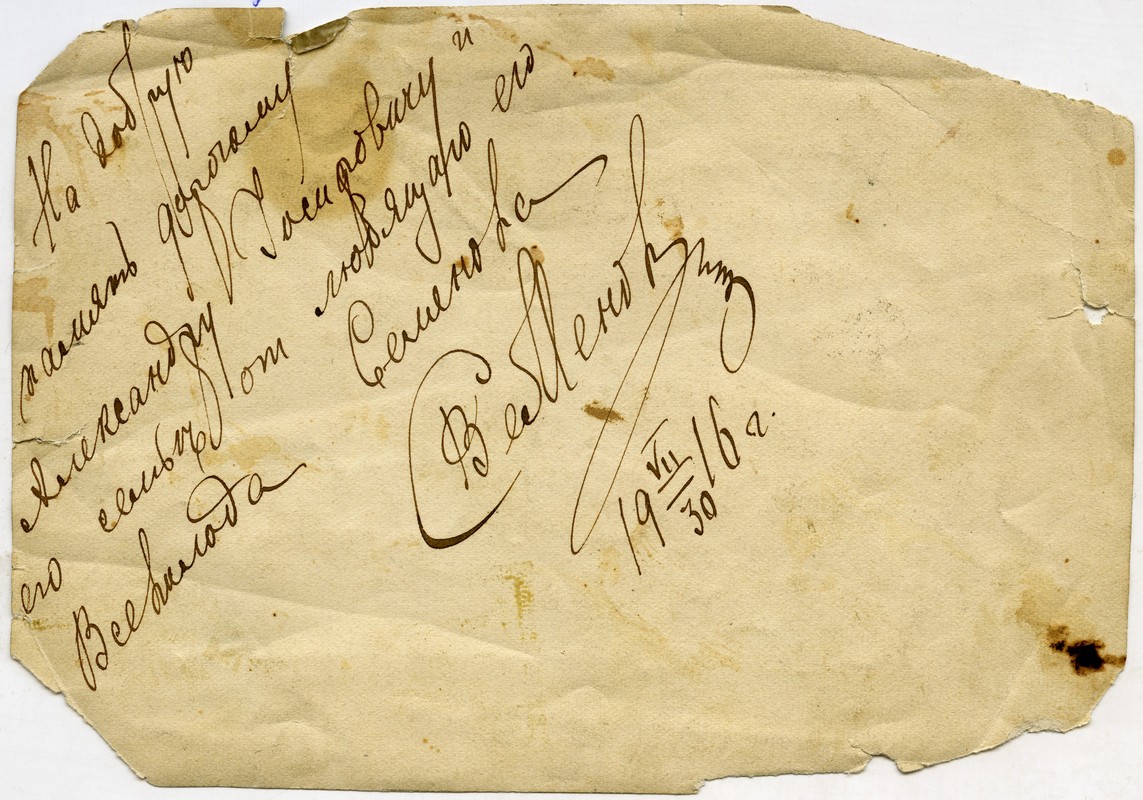 На добрую
память дорогому
Александру Іосифовичу и
его семьѣ от любящаго его
Всеволода Семенова
19 VII/30 16 г.